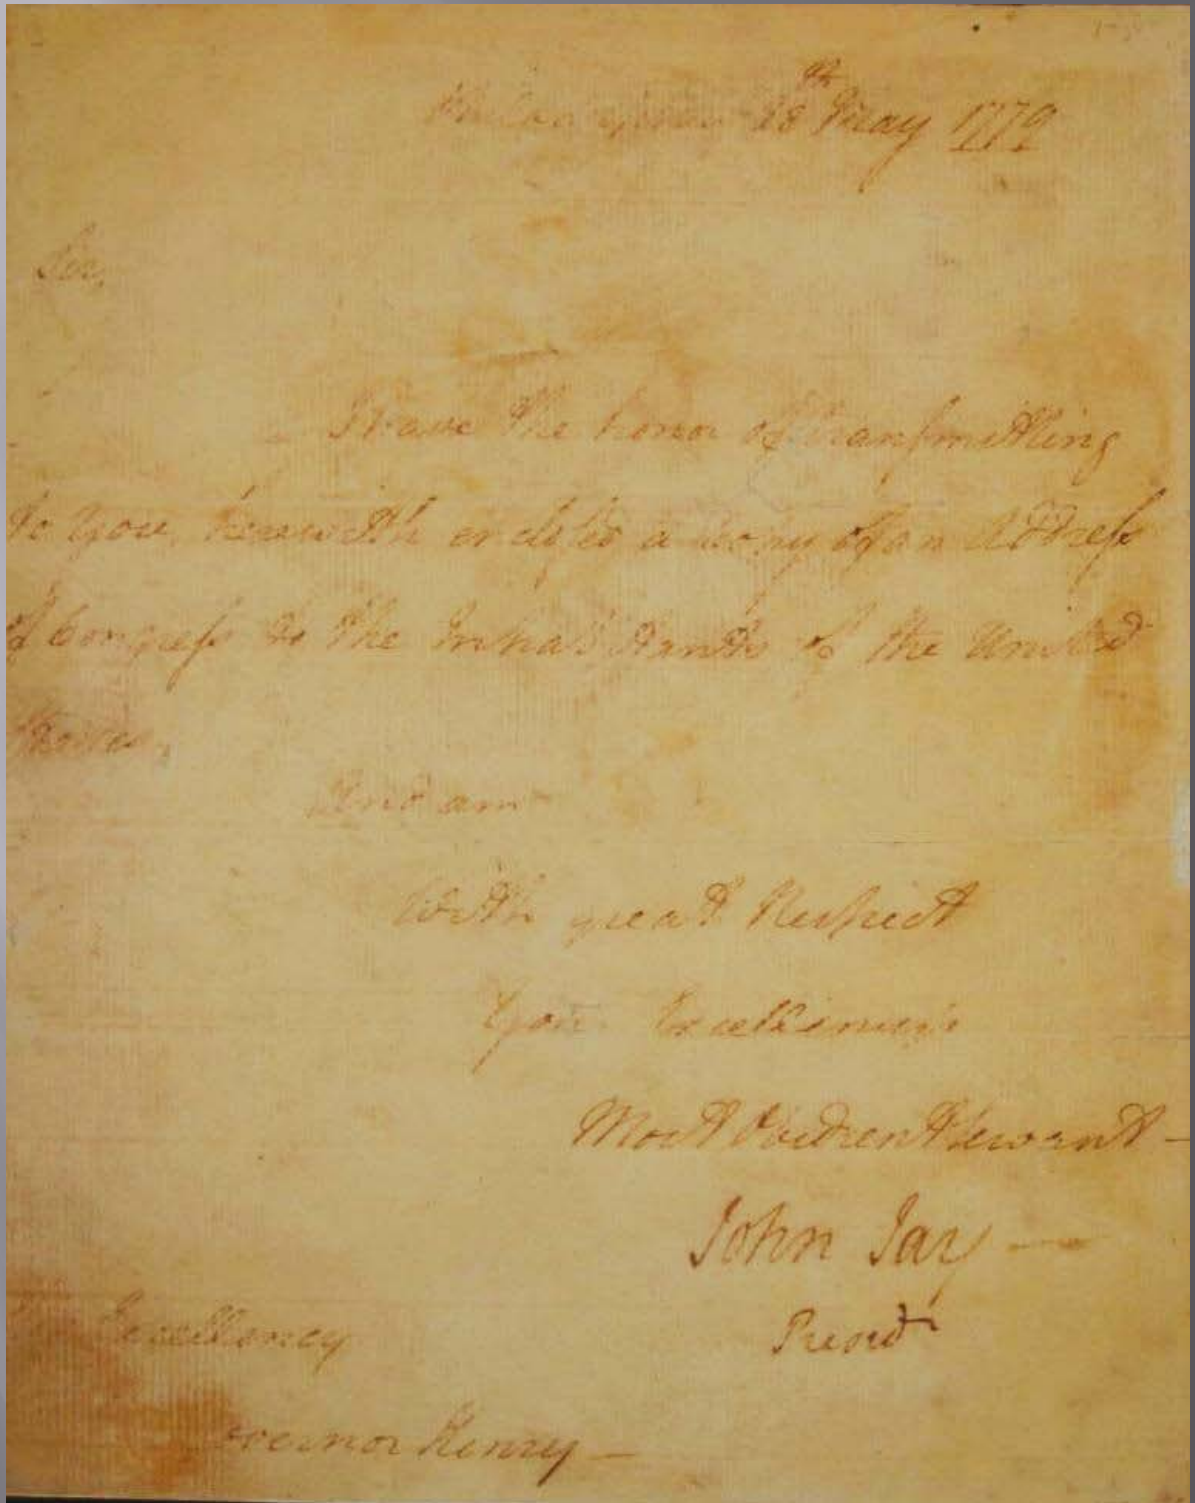 Philadelphia 28th May 1779
Sir,
I have the honor of transmitting
to you, herewith enclosed a Copy of an Address
of Congress to the Inhabitants of the United
States,
And am
With great Respect
Your Excellency's
Most Obedient Servant —
John Jay —
Presidt
Excellency
overnor Henry —